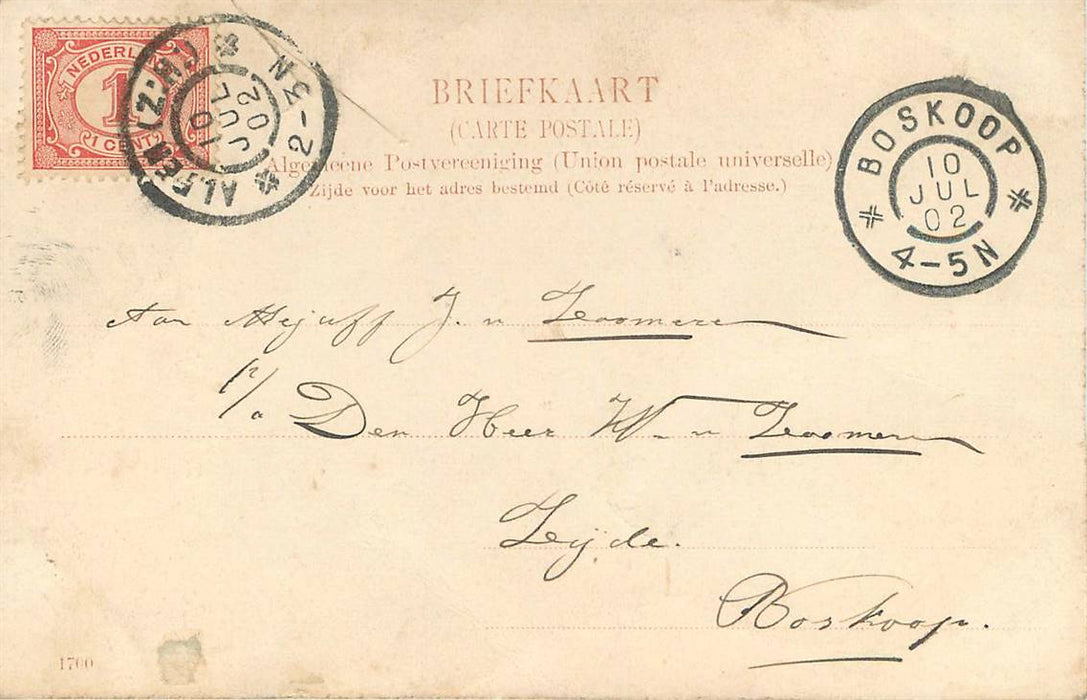 NEDERLAND
1
1 CENT
ALFEN (Z:H:)
10
JUL
02
2-3N
BRIEFKAART
(CARTE POSTALE)
Algemeene Postvereeniging (Union postale universelle)
Zijde voor het adres bestemd (Côté réservé à l'adresse.)
BOSKOOP
10
JUL
02
4-5N
Aan Mejuff J. v Zoomeren
p/a Den Heer W. v Zoomeren
Zijde.
Boskoop.
1700